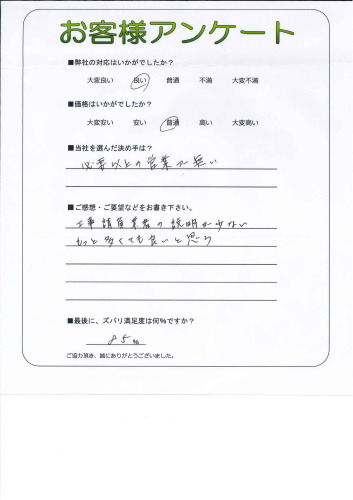 お客様アンケート
■弊社の対応はいかがでしたか?
大変良い 良い 普通 不満 大変不満
■価格はいかがでしたか?
大変安い 安い 普通 高い 大変高い
■当社を選んだ決め手は?
必要以上の営業が無い
■ご感想・ご要望などをお書き下さい。
工事請負業者の説明が少ない
もっと多くても良いと思う
■最後に、ズバリ満足度は何%ですか?
85%
ご協力頂き、誠にありがとうございました。